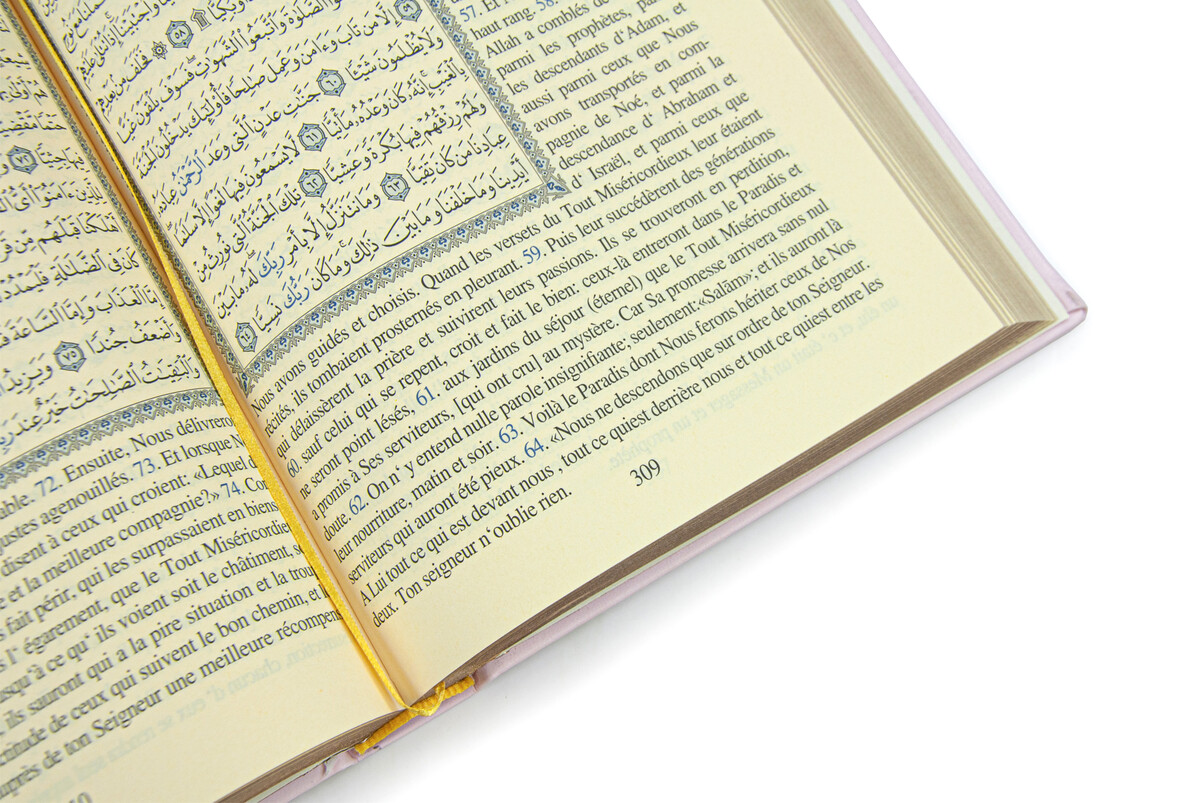 سُجَّدًا وَبُكِيًّا ۩ ٥٨ ۞ فَخَلَفَ مِنْ
ٱلصَّلَوٰةَ وَٱتَّبَعُوا۟ ٱلشَّهَوَٰتِ فَسَوْفَ يَلْقَوْنَ غَيًّا ٥٩
إِلَّا مَن تَابَ وَءَامَنَ وَعَمِلَ صَٰلِحًا فَأُو۟لَٰٓئِكَ يَدْخُلُونَ ٱلْجَنَّةَ
وَلَا يُظْلَمُونَ شَيْـًٔا ٦٠ جَنَّٰتِ عَدْنٍ ٱلَّتِى وَعَدَ ٱلرَّحْمَٰنُ عِبَادَهُۥ
بِٱلْغَيْبِ إِنَّهُۥ كَانَ وَعْدُهُۥ مَأْتِيًّا ٦١ لَّا يَسْمَعُونَ فِيهَا لَغْوًا إِلَّا سَلَٰمًا
وَلَهُمْ رِزْقُهُمْ فِيهَا بُكْرَةً وَعَشِيًّا ٦٢ تِلْكَ ٱلْجَنَّةُ ٱلَّتِى نُورِثُ مِنْ
عِبَادِنَا مَن كَانَ تَقِيًّا ٦٣ وَمَا نَتَنَزَّلُ إِلَّا بِأَمْرِ رَبِّكَ لَهُۥ مَا بَيْنَ
أَيْدِينَا وَمَا خَلْفَنَا وَمَا بَيْنَ ذَٰلِكَ وَمَا كَانَ رَبُّكَ نَسِيًّا ٦٤
57. Et
haut rang. 58.
Allah a comblés de
parmi les prophètes, parmi
les descendants d‘Adam, et
aussi parmi ceux que Nous
avons transportés en com-
pagnie de Noé, et parmi la
descendance d‘ Abraham et
d‘ Israël, et parmi ceux que
Nous avons guidés et choisis. Quand les versets du Tout Miséricordieux leur étaient
récités, ils tombaient prosternés en pleurant. 59. Puis leur succédèrent des générations
qui délaissèrent la prière et suivirent leurs passions. Ils se trouveront en perdition,
60. sauf celui qui se repent, croit et fait le bien: ceux-là entreront dans le Paradis et
ne seront point lésés, 61. aux jardins du séjour (éternel) que le Tout Miséricordieux
a promis à Ses serviteurs, [qui ont cru] au mystère. Car Sa promesse arrivera sans nul
doute. 62. On n‘ y entend nulle parole insignifiante; seulement:«Salâm»; et ils auront là
leur nourriture, matin et soir. 63. Voilà le Paradis dont Nous ferons hériter ceux de Nos
serviteurs qui auront été pieux. 64. «Nous ne descendons que sur ordre de ton Seigneur.
A Lui tout ce qui est devant nous , tout ce quiest derrière nous et tout ce quiest entre les
deux. Ton seigneur n‘oublie rien.
309
ٱلَّذِينَ ءَامَنُوٓا۟ أَىُّ
أَهْلَكْنَا قَبْلَهُم مِّن
كَانَ فِى ٱلضَّلَٰلَةِ فَلْيَمْدُدْ
إِمَّا ٱلْعَذَابَ وَإِمَّا ٱلسَّاعَةَ
وَأَضْعَفُ جُندًا ٧٥ وَيَزِيدُ
وَٱلْبَٰقِيَٰتُ ٱلصَّٰلِحَٰتُ خَيْرٌ عِندَ
able. 72. Ensuite, Nous délivrerons
justes agenouillés. 73. Et lorsque
disent à ceux qui croient: «Lequel
et la meilleure compagnie?» 74.
fait périr, qui les surpassaient en biens
l‘ égarement, que le Tout Miséricordieux
jusqu‘à ce qu‘ ils voient soit le châtiment,
ils sauront qui a la pire situation et la
de ceux qui suivent le bon chemin, et
auprès de ton Seigneur une meilleure